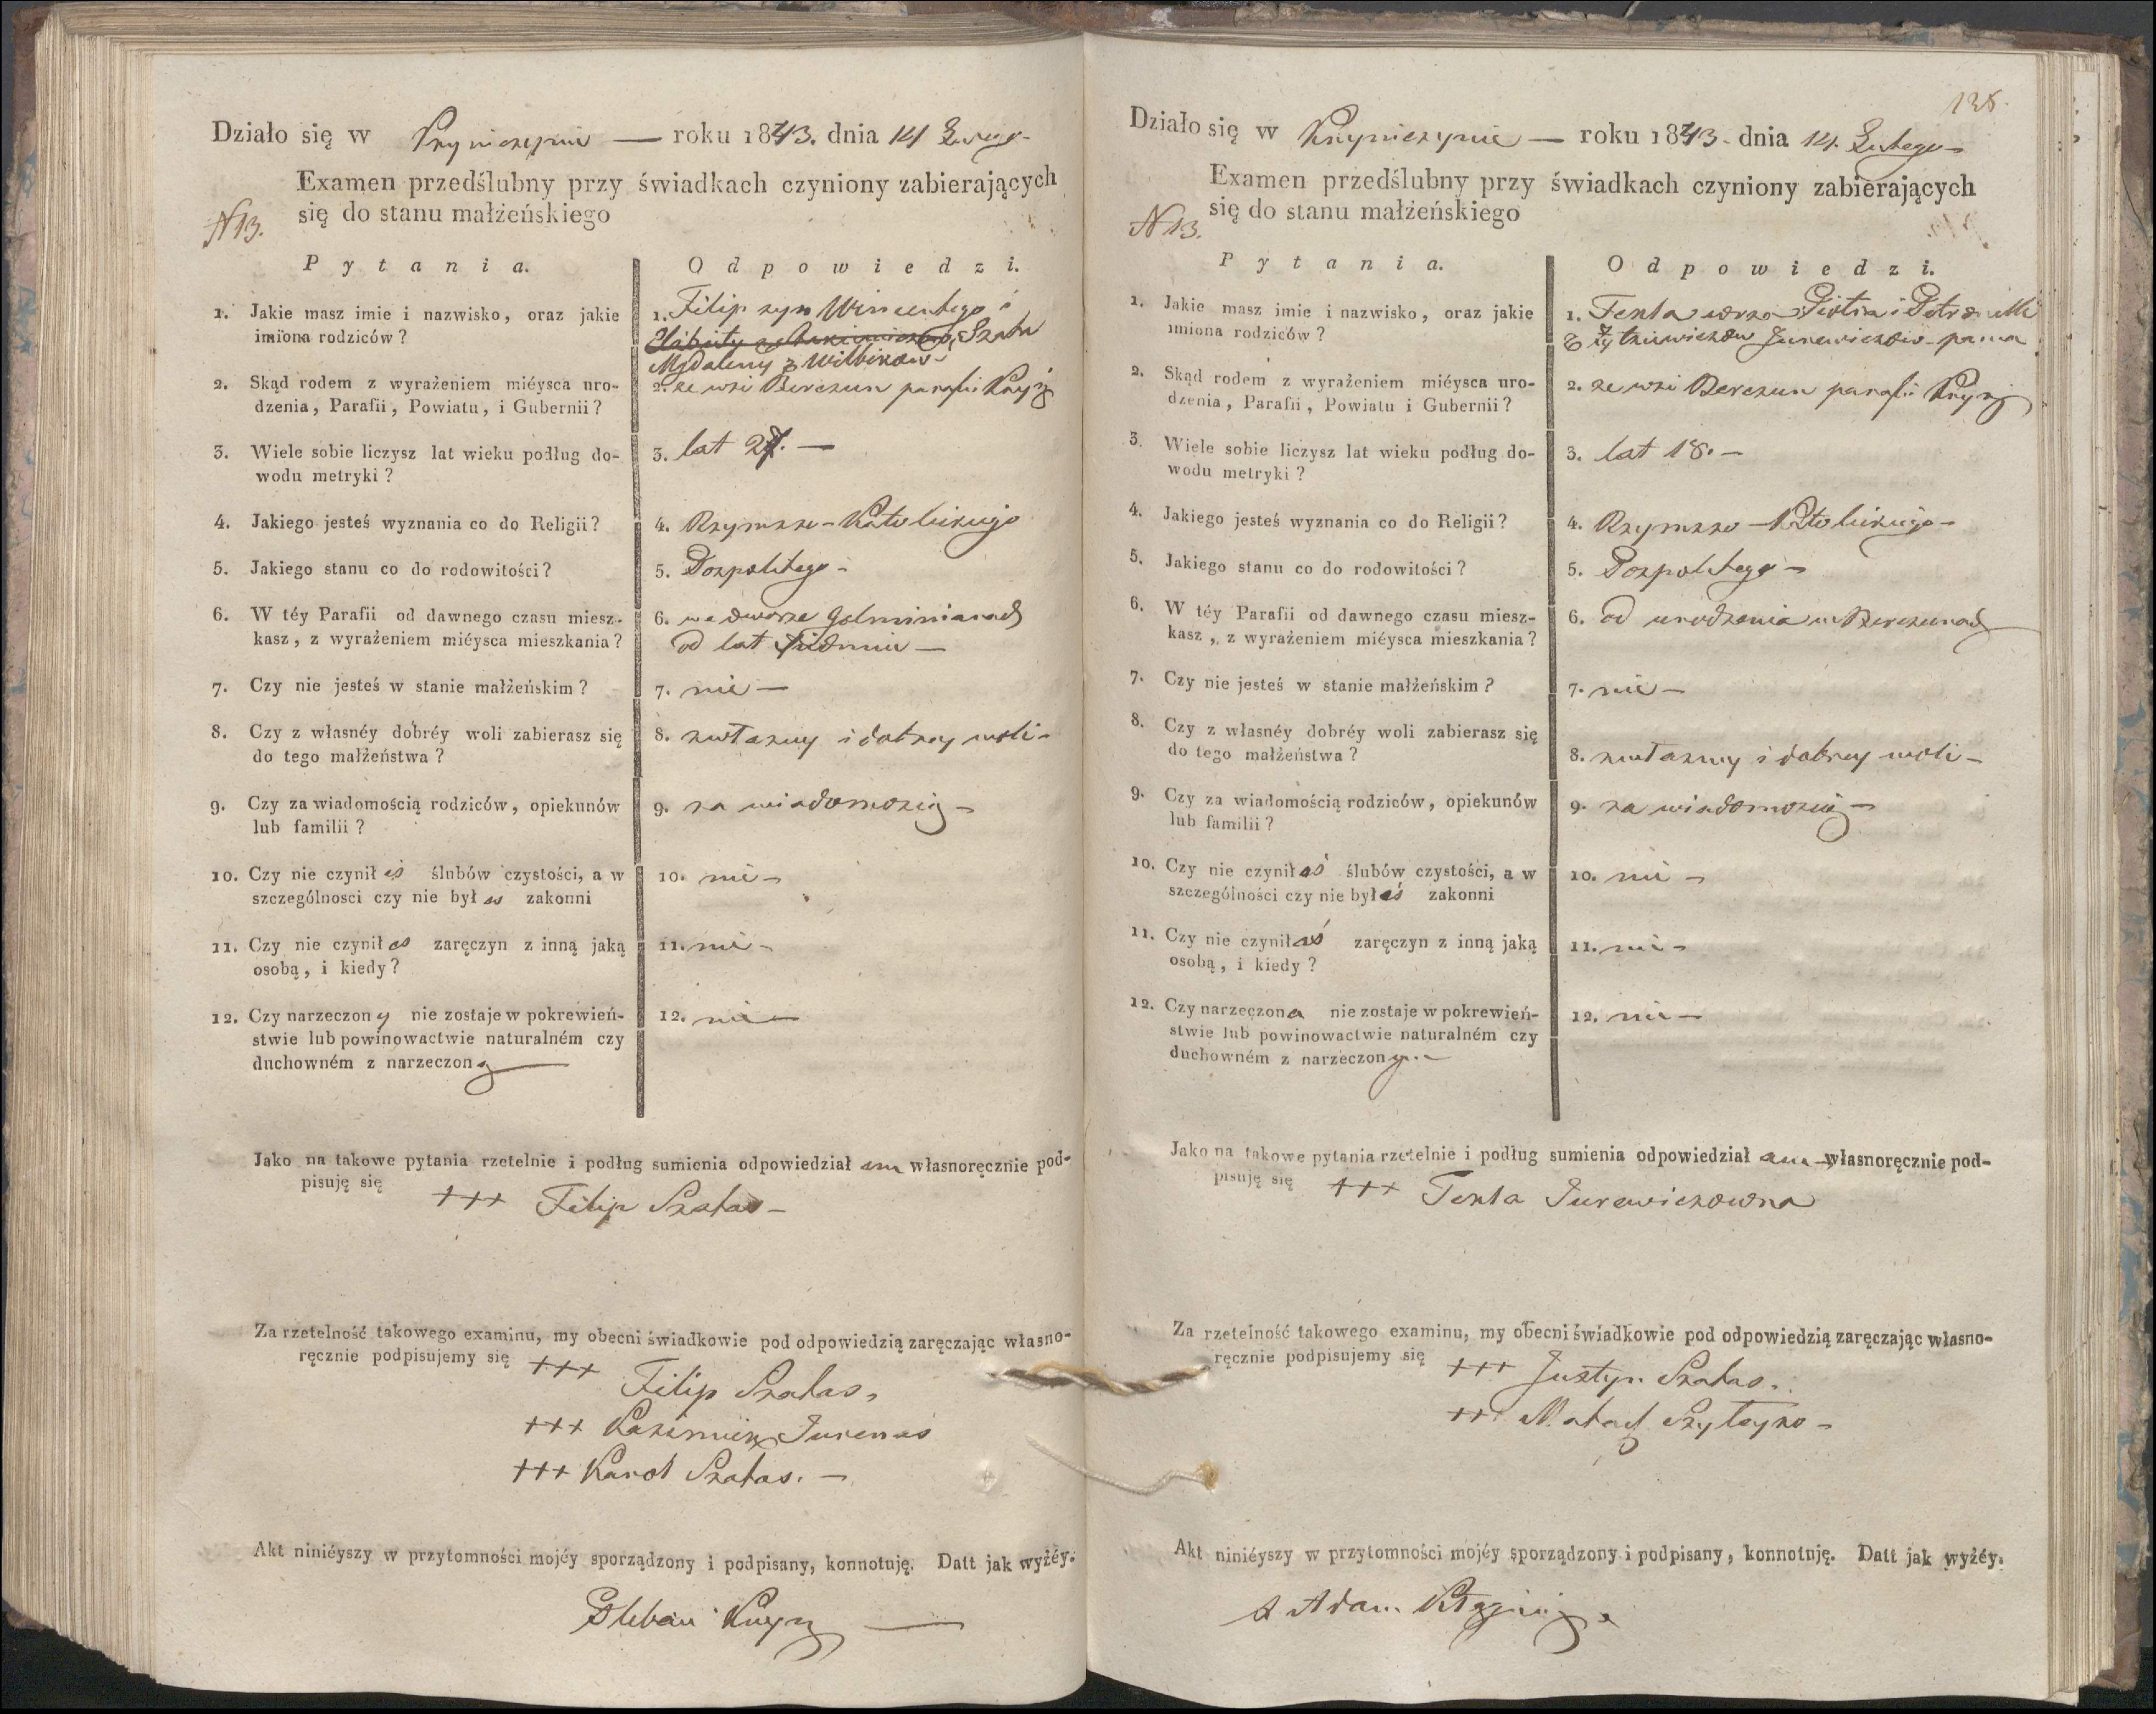 Działo się w Kryniczynie — roku 1843. dnia 14 Lutego
Examen przedślubny przy świadkach czyniony zabierających
się do stanu małżeńskiego
N 13.
Pytania. Odpowiedzi.
1. Jakie masz imie i nazwisko, oraz jakie
imiona rodziców?
1. Filip syn Wincentego i
Szała
Mgdaleny z
2. Skąd rodem z wyrażeniem miéysca uro-
dzenia, Parafii, Powiatu, i Gubernii?
2. ze wsi Berczun parafii
3. Wiele sobie liczysz lat wieku podług do-
wodu metryki?
3. lat —
4. Jakiego jesteś wyznania co do Religii?
4. Rzymsko-Katolickiego
5. Jakiego stanu co do rodowitości?
5. Pospolitego -
6. W téy Parafii od dawnego czasu miesz-
kasz, z wyrażeniem miéysca mieszkania?
6. we dworze
od lat siedmiu —
7. Czy nie jesteś w stanie małżeńskim?
7. nie —
8. Czy z własnéy dobréy woli zabierasz się
do tego małżeństwa?
8. z własney i dobrey woli -
9. Czy za wiadomością rodziców, opiekunów
lub familii?
9. za wiadomoscią -
10. Czy nie czynił eś ślubów czystości, a w
szczególnosci czy nie był eś zakonni
10. nie -
11. Czy nie czynił eś zaręczyn z inną jaką
osobą, i kiedy?
11. nie -
12. Czy narzeczon y nie zostaje w pokrewień-
stwie lub powinowactwie naturalném czy
duchowném z narzeczon ą
12. nie —
Jako na takowe pytania rzetelnie i podług sumienia odpowiedział em własnoręcznie pod-
pisuję się
+++ Filip Szałas -
Za rzetelność takowego examinu, my obecni świadkowie pod odpowiedzią zaręczając własno-
ręcznie podpisujemy się
+++ Filip Szałas,
+++ Kazimierz
+++ Karol Szałas. —
Akt niniéyszy w przytomności mojéy sporządzony i podpisany, konnotuję. Datt jak wyżéy.
Pleban
Działo się w Kryniczynie — roku 1843. dnia 14. Lutego -
Examen przedślubny przy świadkach czyniony zabierających
się do stanu małżeńskiego
N 13.
Pytania. Odpowiedzi.
1. Jakie masz imie i nazwisko, oraz jakie
imiona rodziców?
1. Tekla corka Piotra i Petronelli
Jurewiczow - panna
2. Skąd rodem z wyrażeniem miéysca uro-
dzenia, Parafii, Powiatu i Gubernii?
2. ze wsi Berczun parafii
3. Wiele sobie liczysz lat wieku podług do-
wodu metryki?
3. lat 18. -
4. Jakiego jesteś wyznania co do Religii?
4. Rzymsko-Katolickiego -
5. Jakiego stanu co do rodowitości?
5. Pospolitego -
6. W téy Parafii od dawnego czasu miesz-
kasz, z wyrażeniem miéysca mieszkania?
6. od urodzenia w Berczunach
7. Czy nie jesteś w stanie małżeńskim?
7. nie -
8. Czy z własnéy dobréy woli zabierasz się
do tego małżeństwa?
8. z własney i dobrey woli -
9. Czy za wiadomością rodziców, opiekunów
lub familii?
9. za wiadomoscią -
10. Czy nie czynił aś ślubów czystości, a w
szczególności czy nie był aś zakonni
10. nie -
11. Czy nie czynił aś zaręczyn z inną jaką
osobą, i kiedy?
11. nie -
12. Czy narzeczon a nie zostaje w pokrewień-
stwie lub powinowactwie naturalném czy
duchowném z narzeczon ym. -
12. nie -
Jako na takowe pytania rzetelnie i podług sumienia odpowiedział am - własnoręcznie pod-
pisuję się
+++ Tekla Jurewiczowna
Za rzetelność takowego examinu, my obecni świadkowie pod odpowiedzią zaręczając własno-
ręcznie podpisujemy się
+++ Justyn Szałas.
+++
Akt niniéyszy w przytomności mojéy sporządzony i podpisany, konnotuję. Datt jak wyżéy.
X Adam